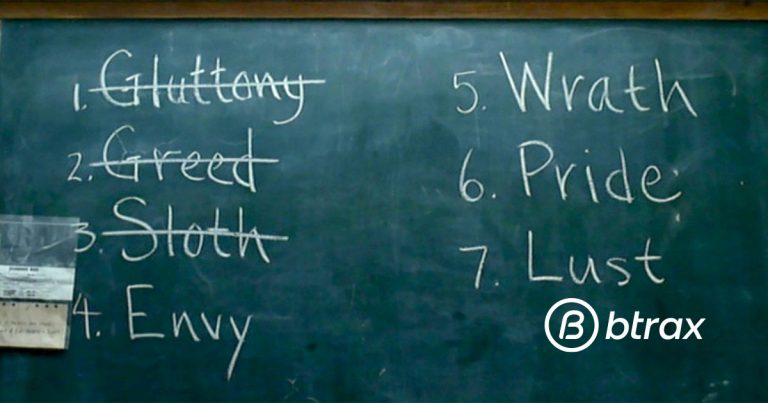 1. Gluttony
2. Greed
3. Sloth
4. Envy
5. Wrath
6. Pride
7. Lust
btrax